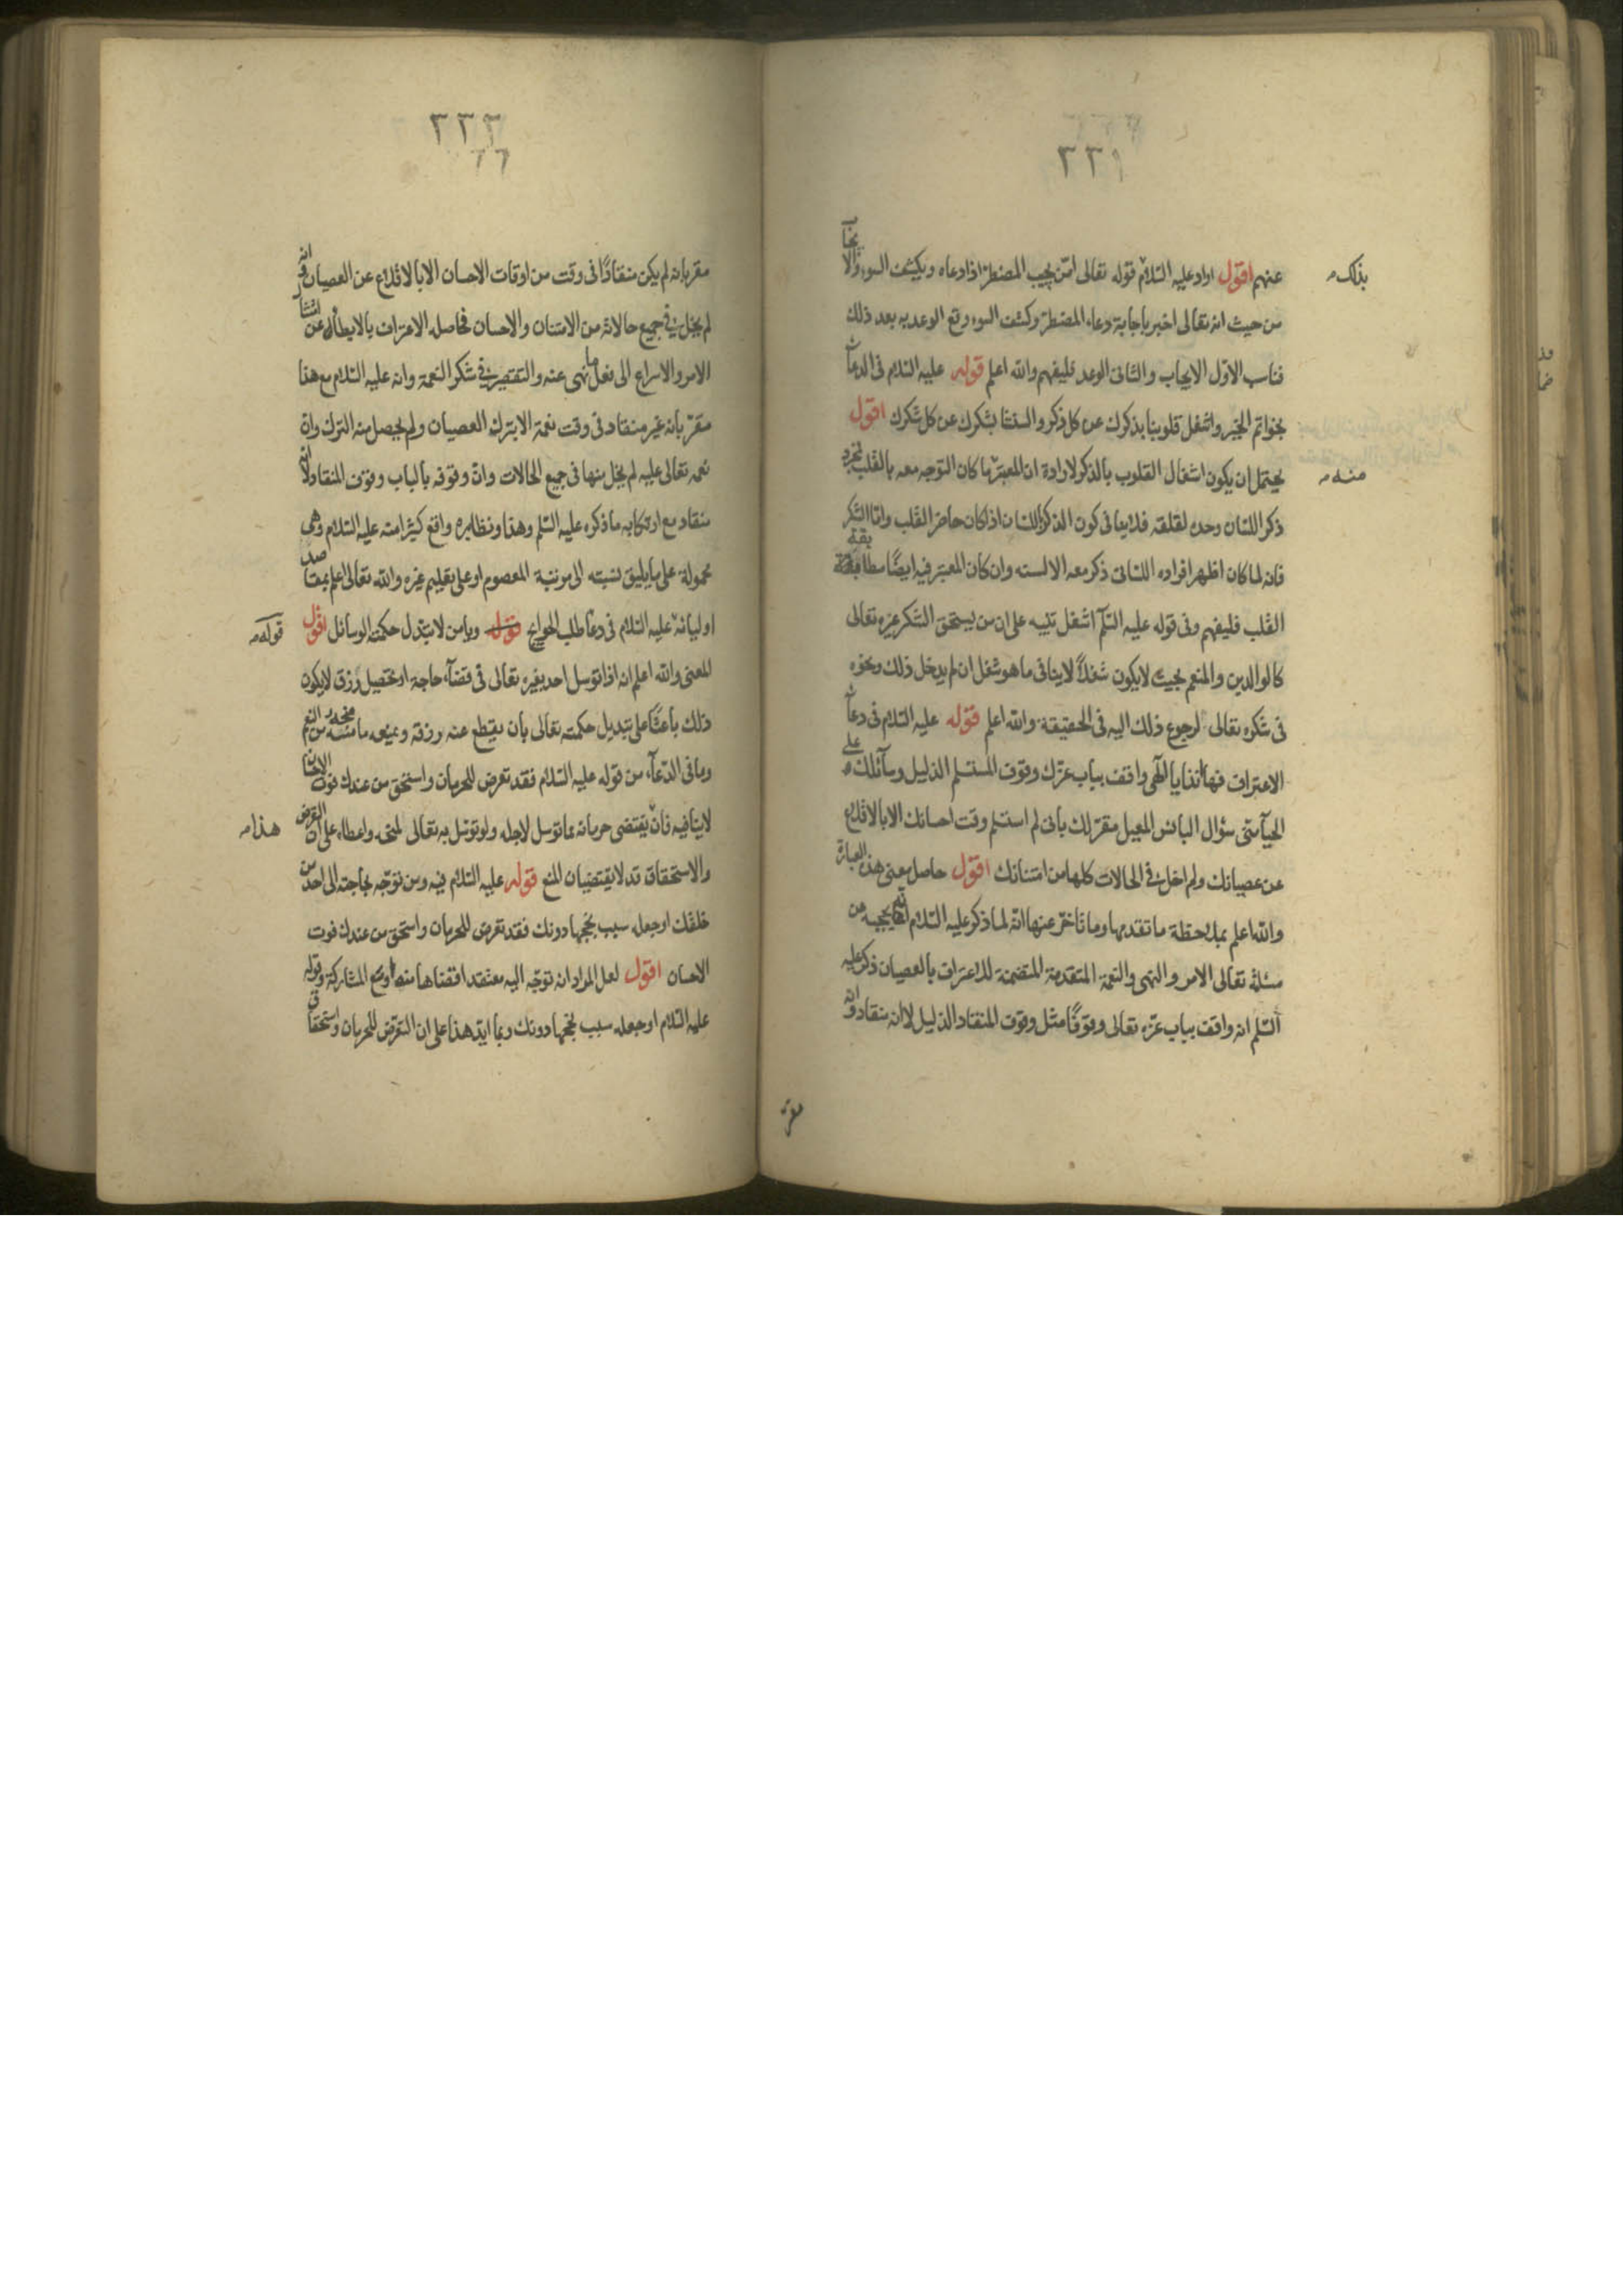 ٢٢١
عنهم اقول اراد عليه السلام قوله تعالى امن يجيب المضطر اذا دعاه ويكشف السوء والايجاب
بذلك
من حيث انه تعالى اخبر باجابة دعاء المضطر وكشف السوء وقع الوعد به بعد ذلك
فناسب الاول الايجاب والثانى الوعد فليفهم والله اعلم قوله عليه السلام فى الدعاء
بخواتم الخير واشغل قلوبنا بذكرك عن كل ذكر والسنتنا بشكرك عن كل شكرك اقول
يحتمل ان يكون اشغال القلوب بالذكر لارادة ان المعتبر ما كان التوجه معه بالقلب
منه
ذكر اللسان وحده لقلقه فلا ينافى كون الذكر باللسان اذا كان حاضر القلب واما الشكر
فانه لما كان اظهر افراده اللسانى ذكر معه الالسنه وان كان المعتبر فيه ايضًا مطابقة
القلب فليفهم وفى قوله عليه السلم اشغل تنبيه على ان من يستحق الشكر غيره تعالى
كالوالدين والمنعم بحيث لا يكون شغلًا لا ينافى ما هو شغل ان لم يدخل ذلك ونحوه
فى شكره تعالى لرجوع ذلك اليه فى الحقيقة والله اعلم قوله عليه السلام فى دعاء
الاعتراف فها انذا يا الهى واقف بباب عزك وقوف المستسلم الذليل وسائلك على
الحياء منى سؤال البائس المعيل مقر لك بانى لم استسلم وقت احسانك الا بالاقلاع
عن عصيانك ولم اخل فى الحالات كلها من امتنانك اقول حاصل معنى هذه العبارة
والله اعلم بملاحظة ما تقدمها وما تاخر عنها انه لما ذكر عليه السلام
مسئلته تعالى الامر والنهى والنعمة المتقدمة المتضمنة للاعتراف بالعصيان ذكر عليه
السلم انه واقف بباب عزه تعالى وقوفًا مثل وقوف المنقاد الذليل لا انه منقاد وانه
مقر
٢٢٢
مقر بانه لم يكن منقادًا فى وقت من اوقات الاحسان الا بالاقلاع عن العصيان وانه
لم يخل فى جميع حالاته من الامتنان والاحسان فحاصله الاعتراف بالابطاء عن امتثال
الامر والاسراع الى فعل ما نهى عنه والتقصير فى شكر النعمة وانه عليه السلام مع هذا
مقر بانه غير منقاد فى وقت نعمة الا بترك العصيان ولم يحصل منه الترك وان
نعمه تعالى عليه لم يخل منها فى جميع الحالات وان وقوفه بالباب وقوف المنقاد لا انه
منقاد مع ارتكابه ما ذكره عليه السلم وهذا ونظايره واقع كثيرا منه عليه السلام وهى
محمولة على ما يليق نسبته الى مرتبة المعصوم او على تعليم غيره والله تعالى اعلم بمقاصد
اوليائه عليه السلام فى دعاء طلب الحوايج قوله ويا من لا تبدل حكمته الوسائل اقول
قوله
المعنى والله اعلم انه اذا توسل احد بغيره تعالى فى قضاء حاجة او تحصيل رزق لا يكون
ذلك باعثًا على تبديل حكمته تعالى بان يقطع عنه رزقه ويمنعه ما منحه من النعم
وما فى الدعاء من قوله عليه السلام فقد تعرض للحرمان واستحق من عندك فوت الاحسان
لا ينافيه فان يقتضى حرمانه مما توسل لاجله ولو توسل به تعالى لمنحه واعطاه على ان التعرض
هذا
والاستحقاق قد لا يقتضيان المنع قوله عليه السلام فيه ومن توجه بحاجته الى احد من
خلقك او جعله سبب نجحها دونك فقد تعرض للحرمان واستحق من عندك فوت
الاحسان اقول لعل المراد انه توجه اليه معتقد اقتضاها منه او مع المشاركة وقوله
عليه السلام او جعله سبب نجحها دونك ربما ايد هذا على ان التعرض للحرمان واستحقاق